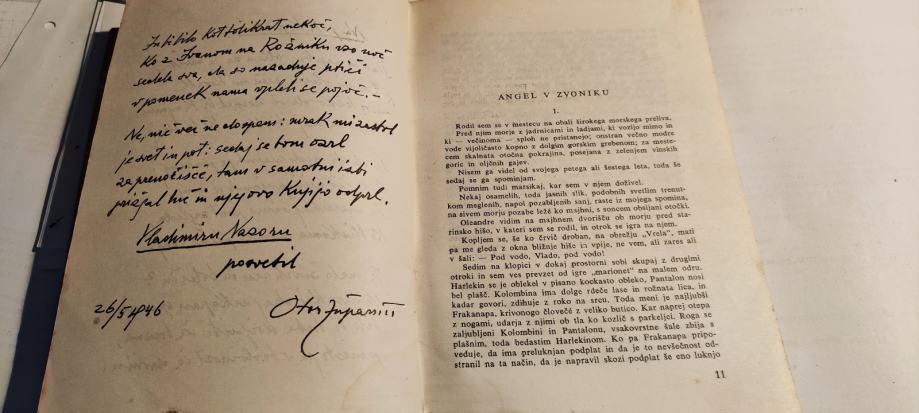 In bilo kot tolikrat nekoč,
ko z Ivanom na Rožniku vso noč
sedela sva, da so nazadnje ptiči
v pomenek nama vpletli se pojoč. —
Ne, nič več ne dospem: mrak mi zastrl
je svet in pot: sedaj se bom ozrl
za prenočišče, tam v samotni izbi
prižgal luč in njegovo Knjigo odprl.
Vladimiru Nazoru
posvetil
26/5 1946
Oton Župančič
ANGEL V ZVONIKU
1.
Rodil sem se v mestecu na obali širokega morskega preliva.
Pred njim morje z jadrnicami in ladjami, ki vozijo mimo in
ki — večinoma — sploh ne pristanejo; onstran večno modre
vode vijoličasto kopno z dolgim gorskim grebenom; za meste-
cem skalnata otočna pokrajina, posejana z zelenjem vinskih
goric in oljčnih gajev.
Nisem ga videl od svojega petega ali šestega leta, toda še
sedaj se ga spominjam.
Pomnim tudi marsikaj, kar sem v njem doživel.
Nekaj osamelih, toda jasnih slik, podobnih svetlim trenut-
kom meglenih, napol pozabljenih sanj, raste iz mojega spomina,
na sivem morju pozabe ležé ko majhni, s soncem obsijani otočki.
Oleandre vidim na majhnem dvorišču ob morju pred sta-
rinsko hišo, v kateri sem se rodil, in otrok se igra na njem.
Kopljem se, še ko črvič droban, na obrežju „Vrela", mati
pa me gleda z okna bližnje hiše in vpije, ne vem, ali zares ali
v šali: — Pod vodo, Vlado, pod vodo!
Sedim na klopici v dokaj prostorni sobi skupaj z drugimi
otroki in sem ves prevzet od igre „marionet" na malem odru.
Harlekin se je oblekel v pisano kockasto obleko, Pantalon nosi
bel plašč. Kolombina ima dolge rdeče lase in rožnata lica, in
kadar govori, zdihuje z roko na srcu. Toda meni je najljubši
Frakanapa, krivonogo človečé z veliko butico. Kar naprej otepa
z nogami, udarja z njimi ob tla ko kozlič s parkeljci. Roga se
zaljubljeni Kolombini in Pantalonu, vsakovrstne šale zbija s
plašnim, toda bedastim Harlekinom. Ko pa Frakanapa pripo-
veduje, da ima preluknjan podplat in da je to nevšečnost od-
stranil na ta način, da je napravil skozi podplat še eno luknjo
11